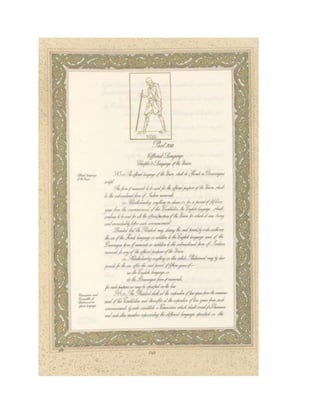 Part XVII
Official Language
Chapter I - Language of the Union
Official language of the Union.
343. (1) The official language of the Union shall be Hindi in Devanagari
script.
The form of numerals to be used for the official purposes of the Union shall
be the international form of Indian numerals.
(2) Notwithstanding anything in clause (1), for a period of fifteen
years from the commencement of this Constitution, the English language shall
continue to be used for all the official purposes of the Union for which it was being
used immediately before such commencement:
Provided that the President may, during the said period, by order authorise
the use of the Hindi language in addition to the English language and of the
Devanagari form of numerals in addition to the international form of Indian
numerals for any of the official purposes of the Union.
(3) Notwithstanding anything in this article, Parliament may by law
provide for the use, after the said period of fifteen years, of—
(a) the English language, or
(b) the Devanagari form of numerals,
for such purposes as may be specified in the law.
Commission and
Committee of
Parliament on
official language.
344. (1) The President shall, at the expiration of five years from the commence-
ment of this Constitution and thereafter at the expiration of ten years from such
commencement, by order constitute a Commission which shall consist of a Chairman
and such other members representing the different languages specified in the